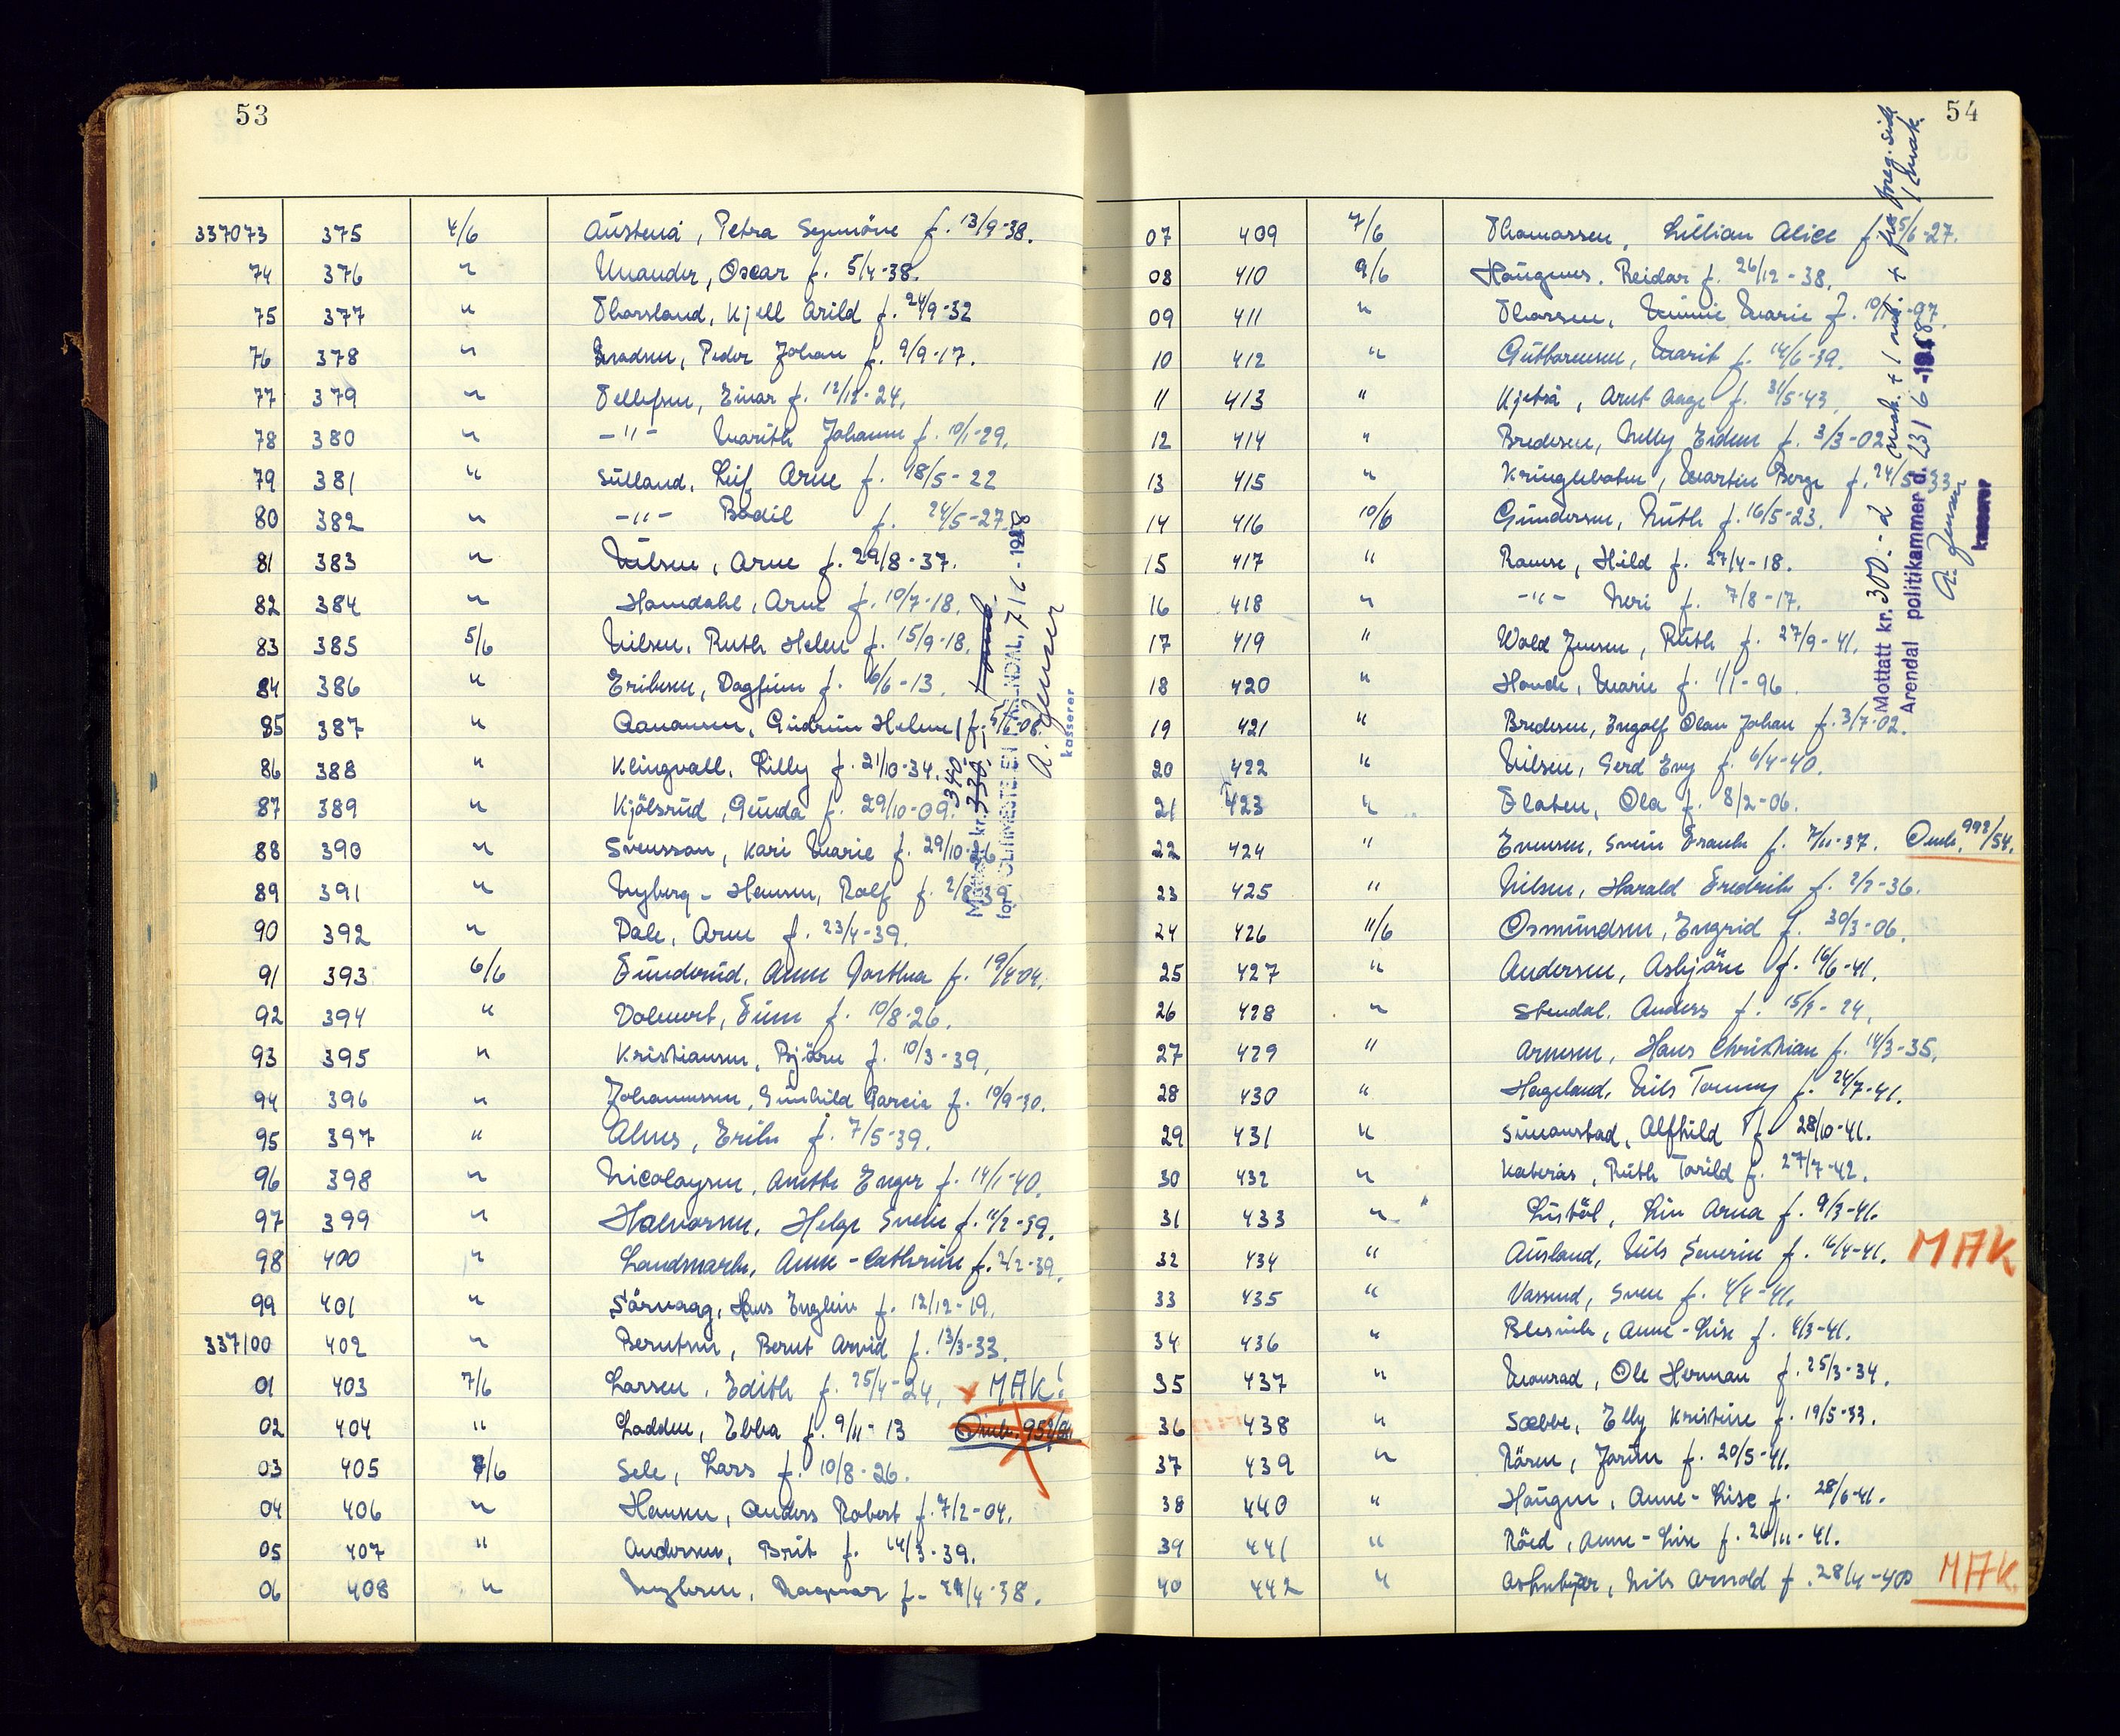 53
337073 375 4/6 Austenå, Petra Synnöve f. 13/9-38.
74 376 " Unander, Oscar f. 5/4-38.
75 377 " Thorsland, Kjell Arild f. 24/9-32
76 378 " Peder Johan f. 9/9-17.
77 379 " Tellefsen, Einar f. 12/12-24.
78 380 " -"- Marith Johanne f. 10/1-29.
79 381 " Sulland, Leif Arne f. 18/5-22
80 382 " -"- Bodil f. 24/5-27.
81 383 " Nilsen, Arne f. 29/8-37.
82 384 " Homdahl, Arne f. 10/7-18.
83 385 5/6 Nilsen, Ruth Helen f. 15/9-18.
84 386 " Eriksen, Dagfinn f. 6/6-13.
85 387 " Aanonsen, Gudrun Helene f. 5/6-08.
86 388 " Klingvall, Lilly f. 21/10-34.
87 389 " Kjölsrud, Gunda f. 29/10-09.
88 390 " Svensson, Kari Marie f. 29/10-26
89 391 " Nyberg-Hansen, Rolf f. 2/8-39
90 392 " Dale, Arne f. 23/4-39.
91 393 6/6 Funderud, Anne Dorthea f. 19/4-04.
92 394 " Volmert, Finn f. 10/8-26.
93 395 " Kristiansen, Björn f. 10/3-39.
94 396 " Johannessen, Gunhild f. 10/9-30.
95 397 " Alnes, Erik f. 7/5-39.
96 398 " Nicolaysen, Anette Enger f. 14/1-40.
97 399 " Halvorsen, Helge Svein f. 11/2-39.
98 400 " Landmark, Anne-Cathrine f. 2/2-39.
99 401 " Sörvaag, Hans f. 12/12-19.
337100 402 " Berntsen, Bernt Arvid f. 13/3-33.
01 403 7/6 Larsen, Edith f. 25/4-24, MAK!
02 404 " Lodden, Ebba f. 9/11-13 Omb.
03 405 7/6 Sele, Lars f. 10/8-26.
04 406 " Hansen, Anders Robert f. 7/2-04.
05 407 " Andersen, Brit f. 14/3-39.
06 408 " Ragnar f. 4-38.
Mottatt kr. 340.-
330.-
for POLITIMESTEREN I ARENDAL, 7/6-1948
A. Jensen
kasserer
54
07 409 7/6 Thomassen, Lillian Alice f. 5/6-27.
08 410 9/6 Haugenes, Reidar f. 26/12-38.
09 411 " Thorsen, Minnie Marie f. 10/ -97.
10 412 " Guttormsen, Marit f. 14/6-39.
11 413 " Kjetså, Arnt Aage f. 31/5-43.
12 414 " Bredesen, Nelly f. 3/3-02
13 415 " Kringlebotn, Martin Berge f. 24/5-33
14 416 10/6 Gundersen, Ruth f. 16/5-23.
15 417 " Ramse, Hild f. 27/4-18.
16 418 " -"- Neri f. 7/8-17.
17 419 " Wold Jensen, Ruth f. 27/9-41.
18 420 " Hande, Marie f. 1/1-96.
19 421 " Bredesen, Ingolf Olan Johan f. 3/7-02.
20 422 " Nilsen, Gerd Evy f. 6/4-40.
21 423 " Flaten, Ola f. 8/2-06.
22 424 " Evensen, Svein Frank f. 7/11-37. Omb. 998/54.
23 425 " Nilsen, Harald Fredrik f. 2/2-36.
24 426 11/6 Osmundsen, Ingrid f. 30/3-06.
25 427 " Andersen, Asbjörn f. 16/6-41.
26 428 " Stendal, Anders f. 15/9-24.
27 429 " Arnesen, Hans Christian f. 14/3-35.
28 430 " Hageland, Nils Tommy f. 24/7-41.
29 431 " Simonstad, Alfhild f. 28/10-41.
30 432 " Katerås, Ruth Torild f. 27/7-42.
31 433 " Listöl, Liv Arna f. 9/3-41.
32 434 " Ausland, Nils Severin f. 16/4-41. MAK
33 435 " Vassend, Sven f. 4/4-41.
34 436 " Blesvik, Anne-Lise f. 4/3-41.
35 437 " Monrad, Ole Herman f. 25/3-34.
36 438 " Sæbbe, Elly Kristine f. 19/5-33.
37 439 " Rören, Jorun f. 20/5-41.
38 440 " Haugen, Anne-Lise f. 28/6-41.
39 441 " Röed, Anne-Lise f. 26/11-41.
40 442 " Nils Arnold f. 28/4-40 MAK.
Mottatt kr. 300.- 2 mak. + 1 + fra preg. side 1 mak.
Arendal politikammer d. 23/6-1948
A. Jensen
kasserer